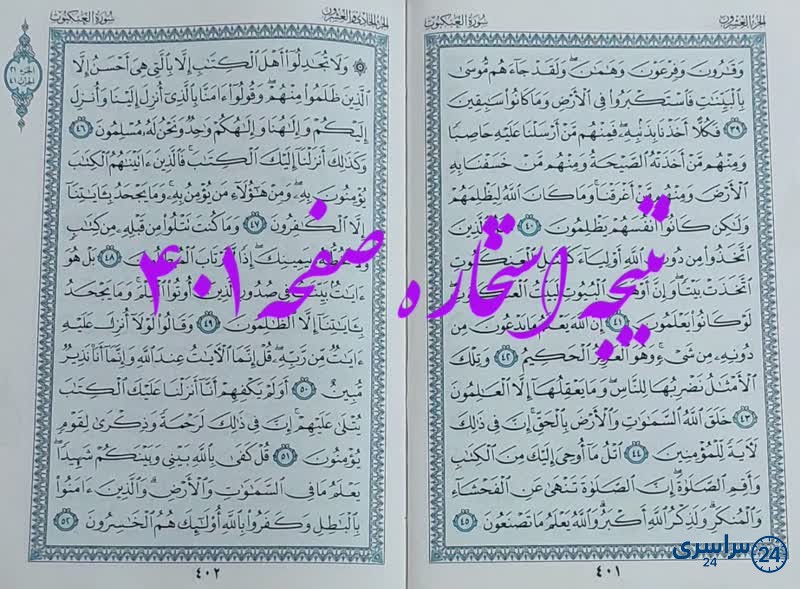 الجزء العشرون
سورة العنكبوت
وَقَٰرُونَ وَفِرْعَوْنَ وَهَٰمَٰنَ ۖ وَلَقَدْ جَآءَهُم مُّوسَىٰ
بِٱلْبَيِّنَٰتِ فَٱسْتَكْبَرُوا۟ فِى ٱلْأَرْضِ وَمَا كَانُوا۟ سَٰبِقِينَ
٣٩ فَكُلًّا أَخَذْنَا بِذَنۢبِهِۦ ۖ فَمِنْهُم مَّنْ أَرْسَلْنَا عَلَيْهِ حَاصِبًا
وَمِنْهُم مَّنْ أَخَذَتْهُ ٱلصَّيْحَةُ وَمِنْهُم مَّنْ خَسَفْنَا بِهِ
ٱلْأَرْضَ وَمِنْهُم مَّنْ أَغْرَقْنَا ۚ وَمَا كَانَ ٱللَّهُ لِيَظْلِمَهُمْ
وَلَٰكِن كَانُوٓا۟ أَنفُسَهُمْ يَظْلِمُونَ ٤٠ ٱلَّذِينَ
ٱتَّخَذُوا۟ مِن دُونِ ٱللَّهِ أَوْلِيَآءَ كَمَثَلِ ٱلْعَنكَبُوتِ
ٱتَّخَذَتْ بَيْتًا ۖ وَإِنَّ أَوْهَنَ ٱلْبُيُوتِ لَبَيْتُ ٱلْعَنكَبُوتِ
لَوْ كَانُوا۟ يَعْلَمُونَ ٤١ إِنَّ ٱللَّهَ يَعْلَمُ مَا يَدْعُونَ مِن
دُونِهِۦ مِن شَىْءٍ ۚ وَهُوَ ٱلْعَزِيزُ ٱلْحَكِيمُ ٤٢ وَتِلْكَ
ٱلْأَمْثَٰلُ نَضْرِبُهَا لِلنَّاسِ ۖ وَمَا يَعْقِلُهَآ إِلَّا ٱلْعَٰلِمُونَ
٤٣ خَلَقَ ٱللَّهُ ٱلسَّمَٰوَٰتِ وَٱلْأَرْضَ بِٱلْحَقِّ ۚ إِنَّ فِى ذَٰلِكَ
لَءَايَةً لِّلْمُؤْمِنِينَ ٤٤ ٱتْلُ مَآ أُوحِىَ إِلَيْكَ مِنَ ٱلْكِتَٰبِ
وَأَقِمِ ٱلصَّلَوٰةَ ۖ إِنَّ ٱلصَّلَوٰةَ تَنْهَىٰ عَنِ ٱلْفَحْشَآءِ
وَٱلْمُنكَرِ ۗ وَلَذِكْرُ ٱللَّهِ أَكْبَرُ ۗ وَٱللَّهُ يَعْلَمُ مَا تَصْنَعُونَ ٤٥
٤٠١
الجزء الحادي والعشرون
سورة العنكبوت
الجزء ٢١
وَلَا تُجَٰدِلُوٓا۟ أَهْلَ ٱلْكِتَٰبِ إِلَّا بِٱلَّتِى هِىَ أَحْسَنُ إِلَّا
ٱلَّذِينَ ظَلَمُوا۟ مِنْهُمْ ۖ وَقُولُوٓا۟ ءَامَنَّا بِٱلَّذِىٓ أُنزِلَ إِلَيْنَا وَأُنزِلَ
إِلَيْكُمْ وَإِلَٰهُنَا وَإِلَٰهُكُمْ وَٰحِدٌ وَنَحْنُ لَهُۥ مُسْلِمُونَ ٤٦
وَكَذَٰلِكَ أَنزَلْنَآ إِلَيْكَ ٱلْكِتَٰبَ ۚ فَٱلَّذِينَ ءَاتَيْنَٰهُمُ ٱلْكِتَٰبَ
يُؤْمِنُونَ بِهِۦ ۖ وَمِنْ هَٰٓؤُلَآءِ مَن يُؤْمِنُ بِهِۦ ۚ وَمَا يَجْحَدُ بِـَٔايَٰتِنَآ
إِلَّا ٱلْكَٰفِرُونَ ٤٧ وَمَا كُنتَ تَتْلُوا۟ مِن قَبْلِهِۦ مِن كِتَٰبٍ
وَلَا تَخُطُّهُۥ بِيَمِينِكَ ۖ إِذًا لَّٱرْتَابَ ٱلْمُبْطِلُونَ ٤٨ بَلْ هُوَ
ءَايَٰتٌۢ بَيِّنَٰتٌ فِى صُدُورِ ٱلَّذِينَ أُوتُوا۟ ٱلْعِلْمَ ۚ وَمَا يَجْحَدُ
بِـَٔايَٰتِنَآ إِلَّا ٱلظَّٰلِمُونَ ٤٩ وَقَالُوا۟ لَوْلَآ أُنزِلَ عَلَيْهِ
ءَايَٰتٌ مِّن رَّبِّهِۦ ۖ قُلْ إِنَّمَا ٱلْءَايَٰتُ عِندَ ٱللَّهِ وَإِنَّمَآ أَنَا۠ نَذِيرٌ
مُّبِينٌ ٥٠ أَوَلَمْ يَكْفِهِمْ أَنَّآ أَنزَلْنَا عَلَيْكَ ٱلْكِتَٰبَ
يُتْلَىٰ عَلَيْهِمْ ۚ إِنَّ فِى ذَٰلِكَ لَرَحْمَةً وَذِكْرَىٰ لِقَوْمٍ
يُؤْمِنُونَ ٥١ قُلْ كَفَىٰ بِٱللَّهِ بَيْنِى وَبَيْنَكُمْ شَهِيدًا ۖ
يَعْلَمُ مَا فِى ٱلسَّمَٰوَٰتِ وَٱلْأَرْضِ ۗ وَٱلَّذِينَ ءَامَنُوا۟
بِٱلْبَٰطِلِ وَكَفَرُوا۟ بِٱللَّهِ أُو۟لَٰٓئِكَ هُمُ ٱلْخَٰسِرُونَ ٥٢
٤٠٢
نتیجه استخاره صفحه ۴۰۱
سراسری
24
24